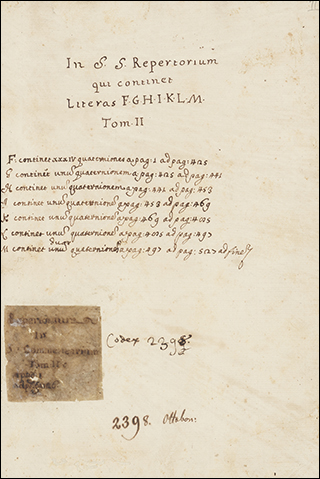 In S. S. Repertorium
qui continet
Literas F.G.H.I.K.L.M.
Tom II
F. continet xxxiv quaterniones a pag: 1 ad pag: 425
G continet unū quaternionem a pag: 425 ad pag: 441
H continet unū quaternionem a pag: 441 ad pag: 453
continet unū quaternionē a pag: 453 ad pag: 469
K continet unū quaternionē a pag: 469 ad pag:
L continet unū quaternionē a pag: ad pag: 497
duos
M continet unū quaternionē a pag: 497 ad pag: 527 ad finē
Repertorium
In
Tom II
Codex 2398
2398. Ottobon: